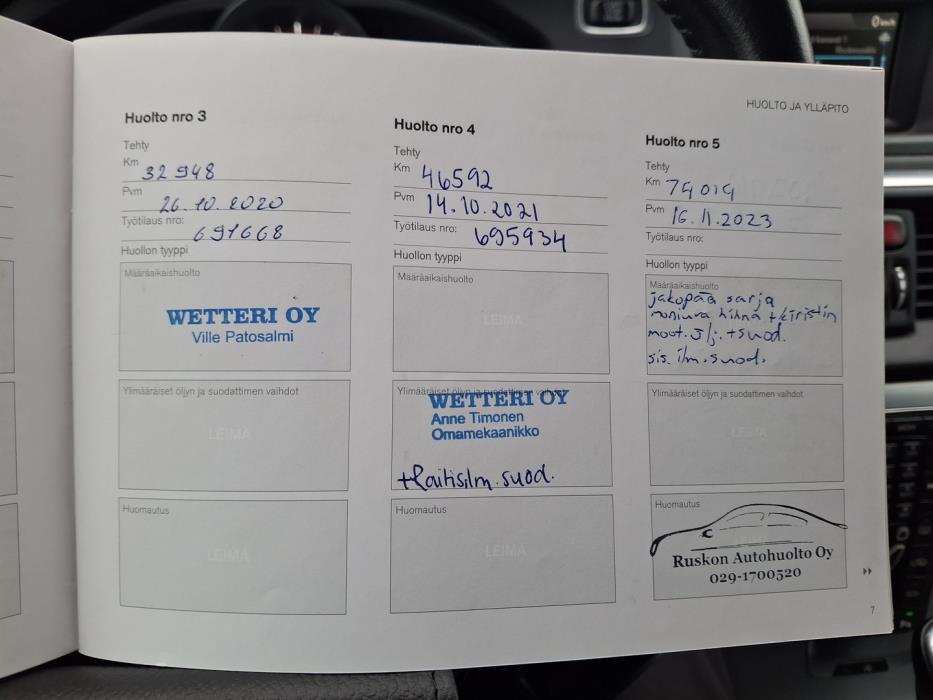 HUOLTO JA YLLÄPITO
Huolto nro 3
Tehty
Km 32 948
Pvm 26.10.2020
Työtilaus nro: 691668
Huollon tyyppi
Määräaikaishuolto
WETTERI OY
Ville Patosalmi
Ylimääräiset öljyn ja suodattimen vaihdot
LEIMA
Huomautus
LEIMA
Huolto nro 4
Tehty
Km 46592
Pvm 14.10.2021
Työtilaus nro: 695934
Huollon tyyppi
Määräaikaishuolto
LEIMA
Ylimääräiset öljyn ja suodattimen vaihdot
WETTERI OY
Anne Timonen
Omamekaanikko
+Raitisilm. suod.
Huomautus
LEIMA
Huolto nro 5
Tehty
Km 79019
Pvm 16.11.2023
Työtilaus nro:
Huollon tyyppi
Määräaikaishuolto
jakopää sarja
moniura hihna + kiristin
moot. öljy. + suod.
sis. ilm. suod.
Ylimääräiset öljyn ja suodattimen vaihdot
LEIMA
Huomautus
LEIMA
Ruskon Autohuolto Oy
029-1700520
7